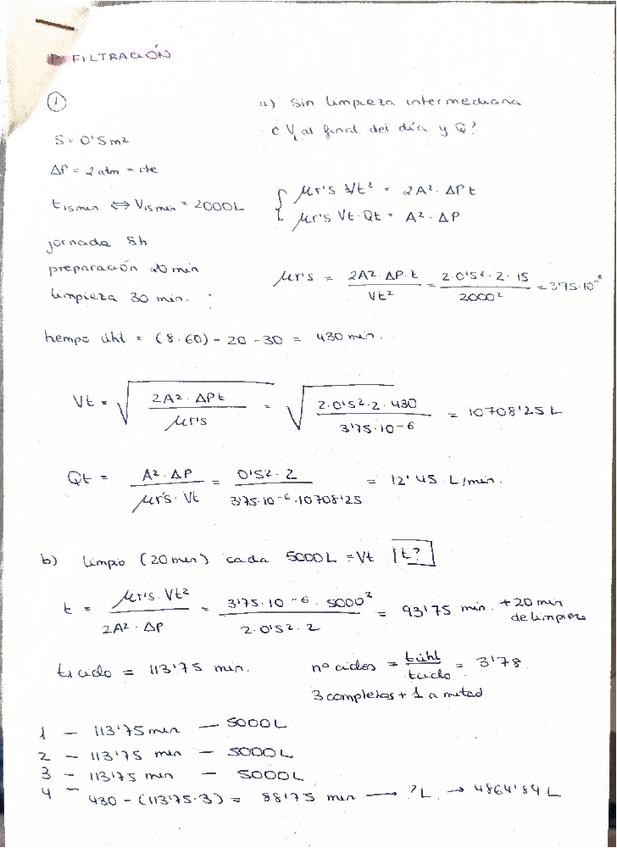 P. FILTRACIÓN
①
a) Sin limpieza intermediaria
¿ Vt al final del día y Q?
S = 0'5 m2
ΔP = 2 atm = cte
t15min ⇔ V15min = 2000L
jornada 8h
preparación 20 min
limpieza 30 min.
{ μr's Vt² = 2A² · ΔP t
μr's Vt · Qt = A² · ΔP
μr's = 2A² · ΔP · t / Vt² = 2 · 0'5² · 2 · 15 / 2000² = 3'75 · 10⁻⁶
tiempo útil = (8 · 60) - 20 - 30 = 430 min.
Vt = √(2A² · ΔP t / μr's) = √(2 · 0'5² · 2 · 430 / 3'75 · 10⁻⁶) = 10708'25 L
Qt = A² · ΔP / μr's · Vt = 0'5² · 2 / 3'75 · 10⁻⁶ · 10708'25 = 12'45 L/min.
b) limpio (20 min) cada 5000L = Vt t?
t = μr's · Vt² / 2A² · ΔP = 3'75 · 10⁻⁶ · 5000² / 2 · 0'5² · 2 = 93'75 min. + 20 min de limpieza
t1 ciclo = 113'75 min.
nº ciclos = tútil / tciclo = 3'78
3 completos + 1 a mitad
1 - 113'75 min - 5000L
2 - 113'75 min - 5000L
3 - 113'75 min - 5000L
4 - 430 - (113'75 · 3) = 88'75 min → ?L → 4864'84 L